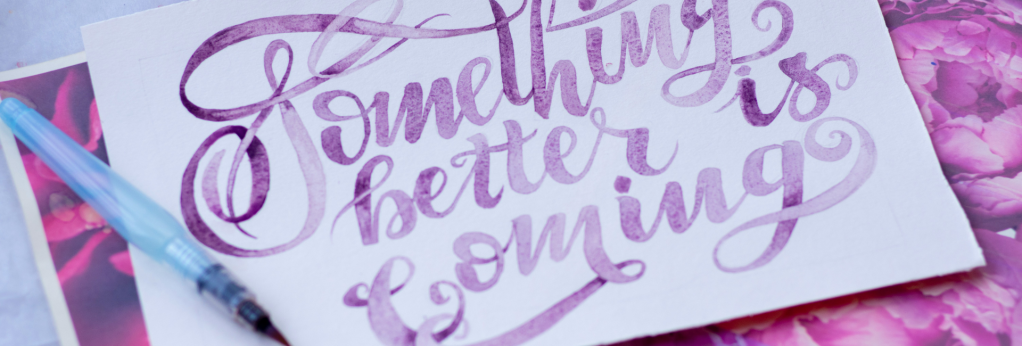 Something
is
better
Coming